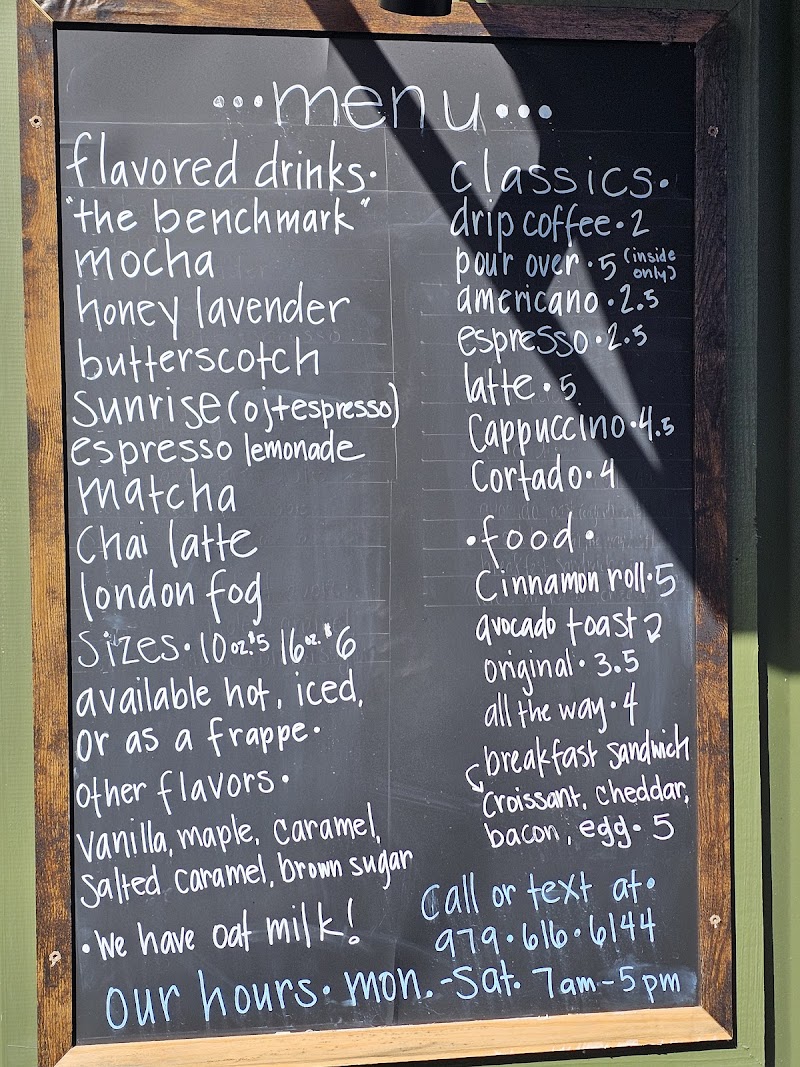 ...menu...
flavored drinks.
"the benchmark"
mocha
honey lavender
butterscotch
sunrise (oj+espresso)
espresso lemonade
matcha
chai latte
london fog
sizes • 10oz. $5 16oz. $6
available hot, iced,
or as a frappe.
other flavors.
vanilla, maple, caramel,
salted caramel, brown sugar
• we have oat milk!
classics.
drip coffee • 2
pour over • 5 (inside only)
americano • 2.5
espresso • 2.5
latte • 5
cappuccino • 4.5
cortado • 4
• food •
cinnamon roll • 5
avocado toast
original • 3.5
all the way • 4
breakfast sandwich
croissant, cheddar,
bacon, egg • 5
call or text at.
979 • 616 • 6144
our hours. mon.-sat. 7am-5pm